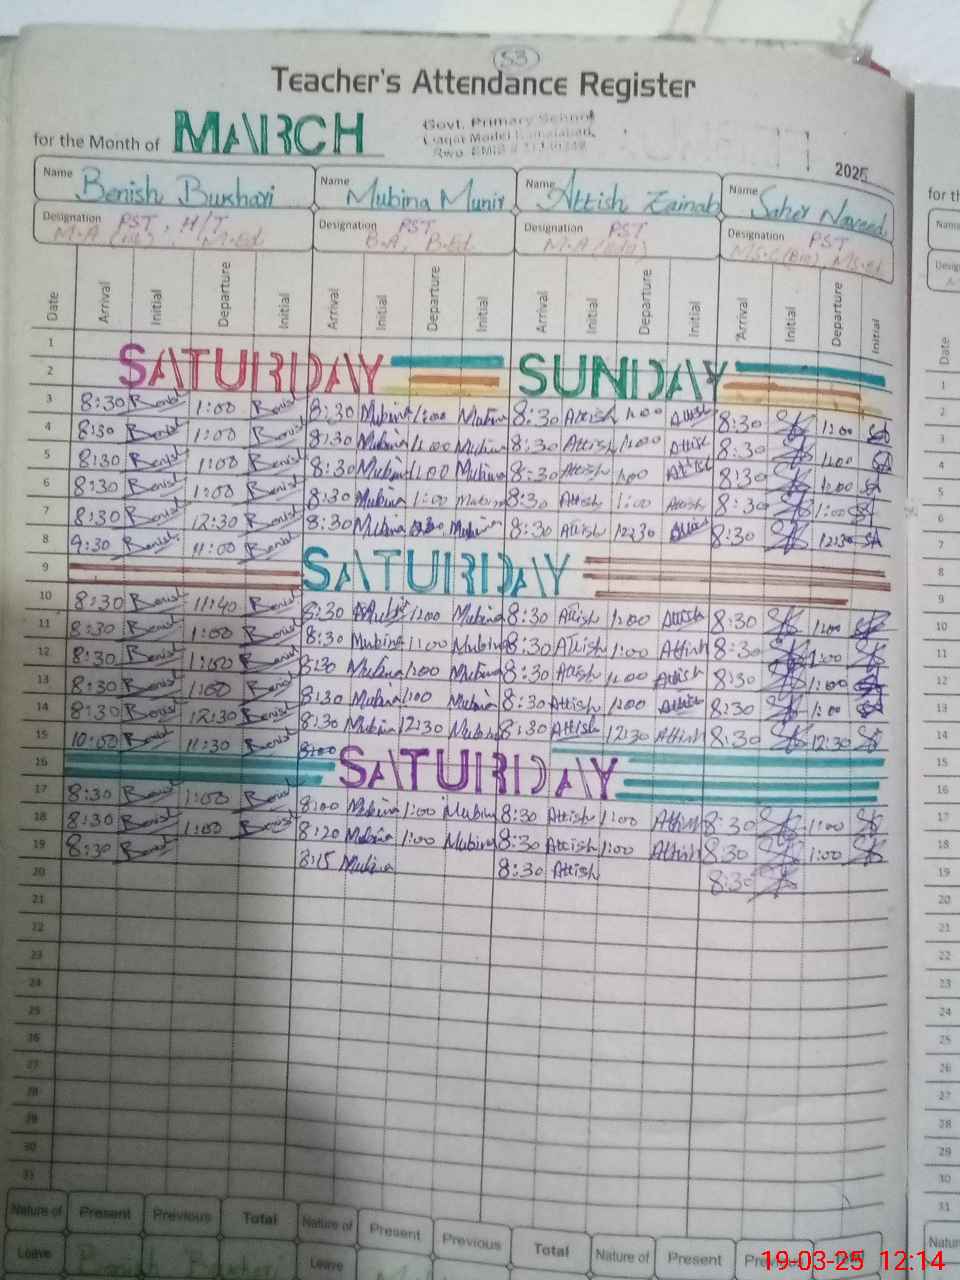 53
Teacher's Attendance Register
for the Month of MARCH
Govt. Primary School
2025
Name Benish Bukhari Name Mubina Munir Name Attish Zainab Name Saher Naveed
Designation PST, H/T Designation PST Designation PST Designation PST
M.Ed B.A, B.Ed
Date Arrival Initial Departure Initial Arrival Initial Departure Initial Arrival Initial Departure Initial Arrival Initial Departure Initial
1
2 SATURDAY SUNDAY
3 8:30 Benish 1:00 Benish 8:30 Mubina 1:00 Mubina 8:30 Attish 1:00 Attish 8:30 1:00
4 8:30 Benish 1:00 Benish 8:30 Mubina 1:00 Mubina 8:30 Attish 1:00 Attish 8:30 1:00
5 8:30 Benish 1:00 Benish 8:30 Mubina 1:00 Mubina 8:30 Attish 1:00 Attish 8:30 1:00
6 8:30 Benish 1:00 Benish 8:30 Mubina 1:00 Mubina 8:30 Attish 1:00 Attish 8:30 1:00
7 8:30 Benish 12:30 Benish 8:30 Mubina Mubina 8:30 Attish 12:30 Attish 8:30 12:30
8 9:30 Benish 11:00 Benish
9 SATURDAY
10 8:30 Benish 11:40 Benish 8:30 1:00 Mubina 8:30 Attish 1:00 Attish 8:30 1:00
11 8:30 Benish 1:00 Benish 8:30 Mubina 1:00 Mubina 8:30 Attish 1:00 Attish 8:30 1:00
12 8:30 Benish 1:00 Benish 8:30 Mubina 1:00 Mubina 8:30 Attish 1:00 Attish 8:30 1:00
13 8:30 Benish 1:00 Benish 8:30 Mubina 1:00 Mubina 8:30 Attish 1:00 Attish 8:30 1:00
14 8:30 Benish 12:30 Benish 8:30 Mubina 12:30 Mubina 8:30 Attish 12:30 Attish 8:30 12:30
15 10:00 Benish 11:30 Benish 8:00
16 SATURDAY
17 8:30 Benish 1:00 Benish 8:00 Mubina 1:00 Mubina 8:30 Attish 1:00 Attish 8:30 1:00
18 8:30 Benish 1:00 Benish 8:20 Mubina 1:00 Mubina 8:30 Attish 1:00 Attish 8:30 1:00
19 8:30 Benish 8:15 Mubina 8:30 Attish 8:30
20
21
22
23
24
25
26
27
28
29
30
31
Nature of Leave Present Previous Total Nature of Leave Present Previous Total Nature of Present Previous
for th
Name
Date
1
2
3
4
5
6
7
8
9
10
11
12
13
14
15
16
17
18
19
20
21
22
23
24
25
26
27
28
29
30
31
Natur
19-03-25 12:14